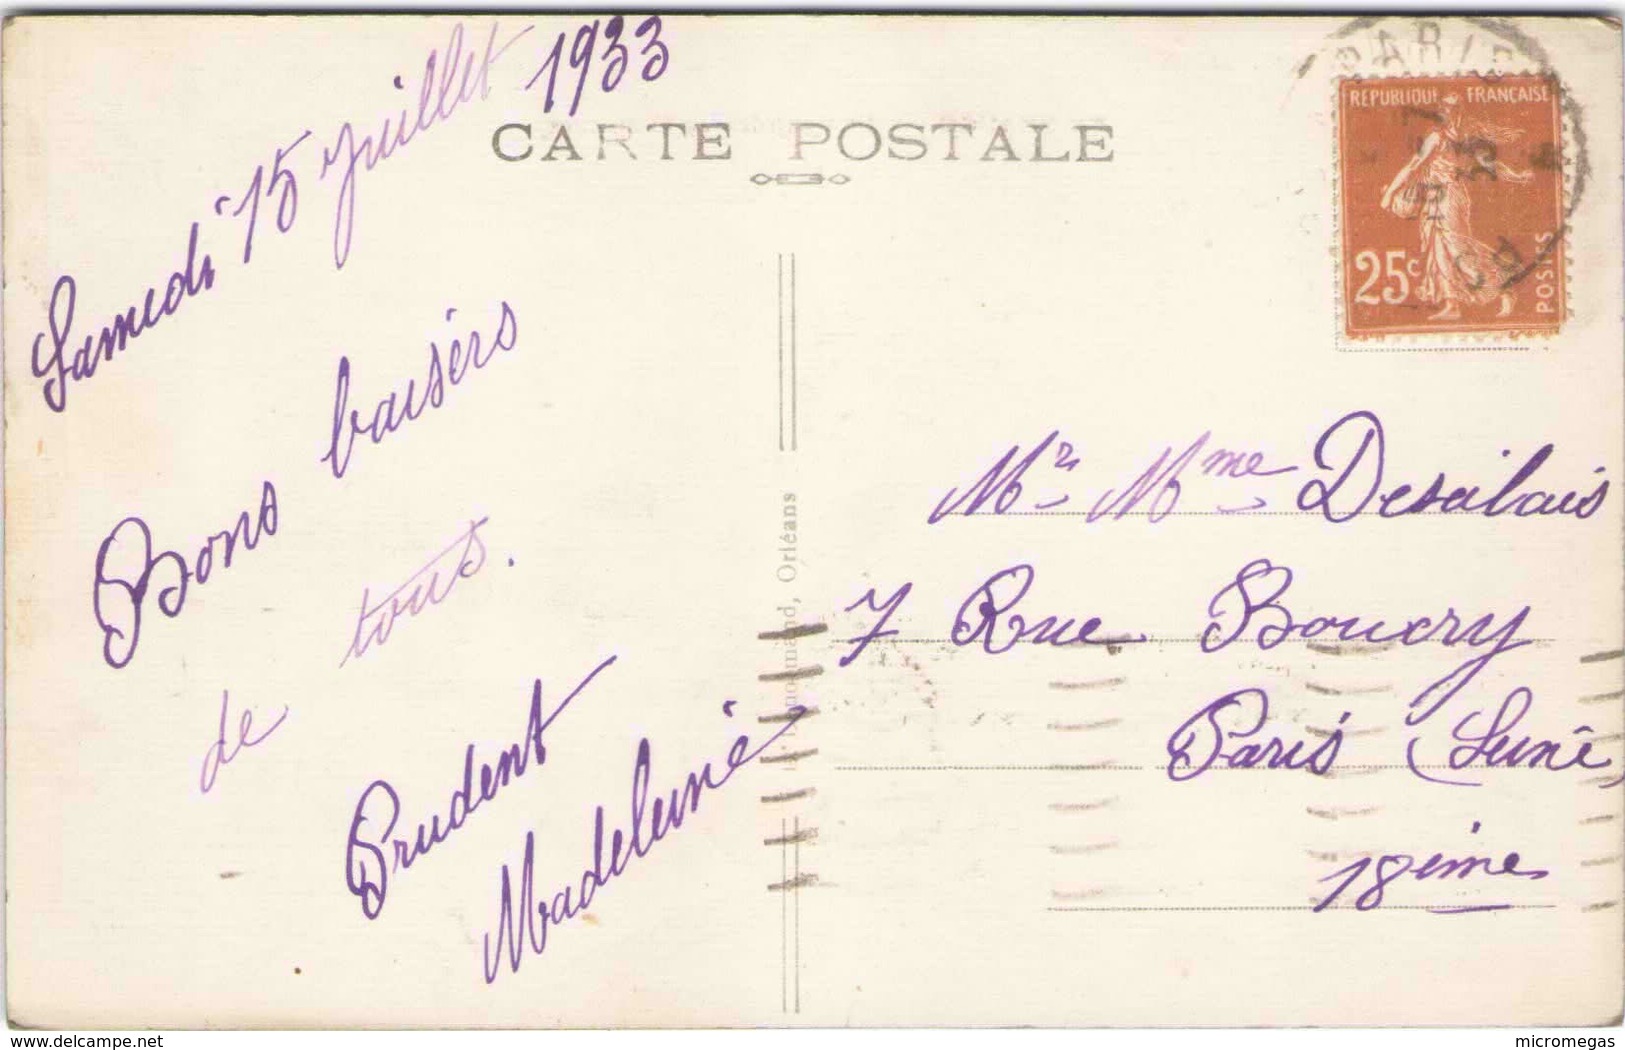 Samedi 15 Juillet 1933
CARTE POSTALE
Bons baisers
de tous.
Prudent
Madeleine
Orléans
PARIS
REPUBLIQUE FRANÇAISE
25c
POSTES
Mr Mme Desalais
7 Rue Boucry
Paris (Seine)
18eime
delcampe.net
micromegas